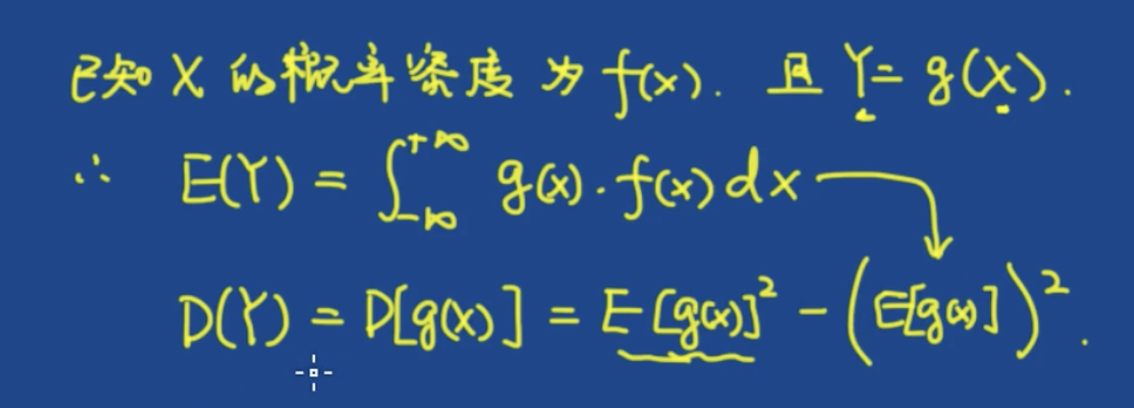 已知 X 的概率密度为 f(x). 且 Y = g(X).
∴ E(Y) = ∫_{-∞}^{+∞} g(x)·f(x) dx
D(Y) = D[g(x)] = E[g(x)]² - (E[g(x)])².